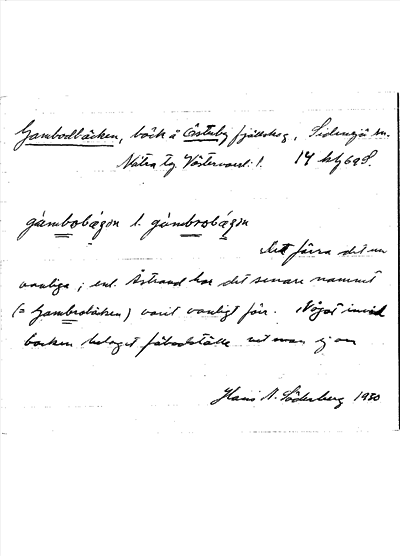 Gambodbäcken, bäck å Östby fjällskog, Sidensjö sn.
Nätra tg. Västernorrl. l. 14 kbl 69 S.
gàmbobä́gɔn l. gàmbrobä́gɔn
Det förra det nu
vanliga; enl. Åstrand har det senare namnet
(= Gambrobäcken) varit vanligt förr. Något invid
bäcken beläget fäbodställe vet man ej om
Hans N. Söderberg 1930